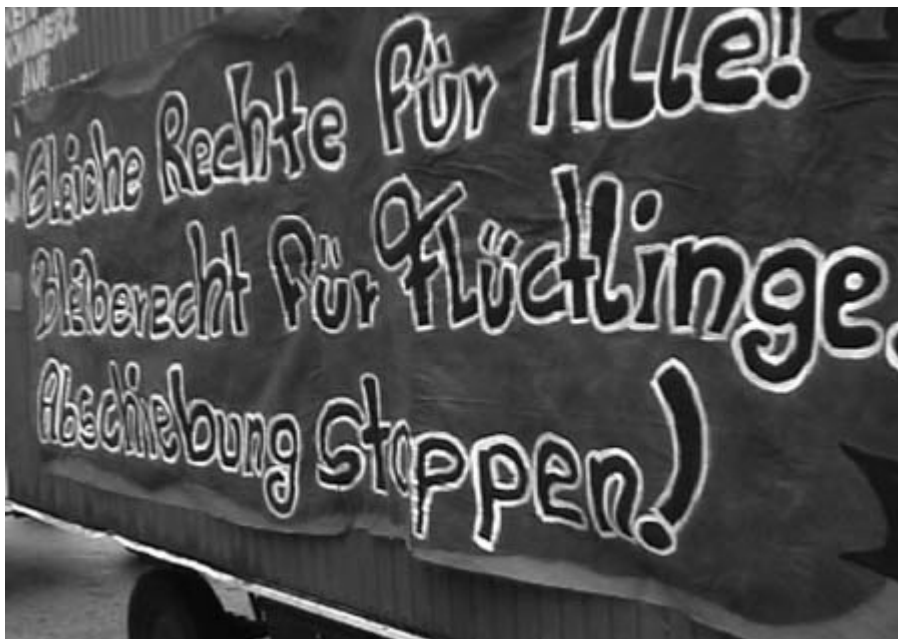 KOMMERZ
AUF
Gleiche Rechte für Alle!
Bleiberecht für Flüctlinge.
Abschiebung stoppen!